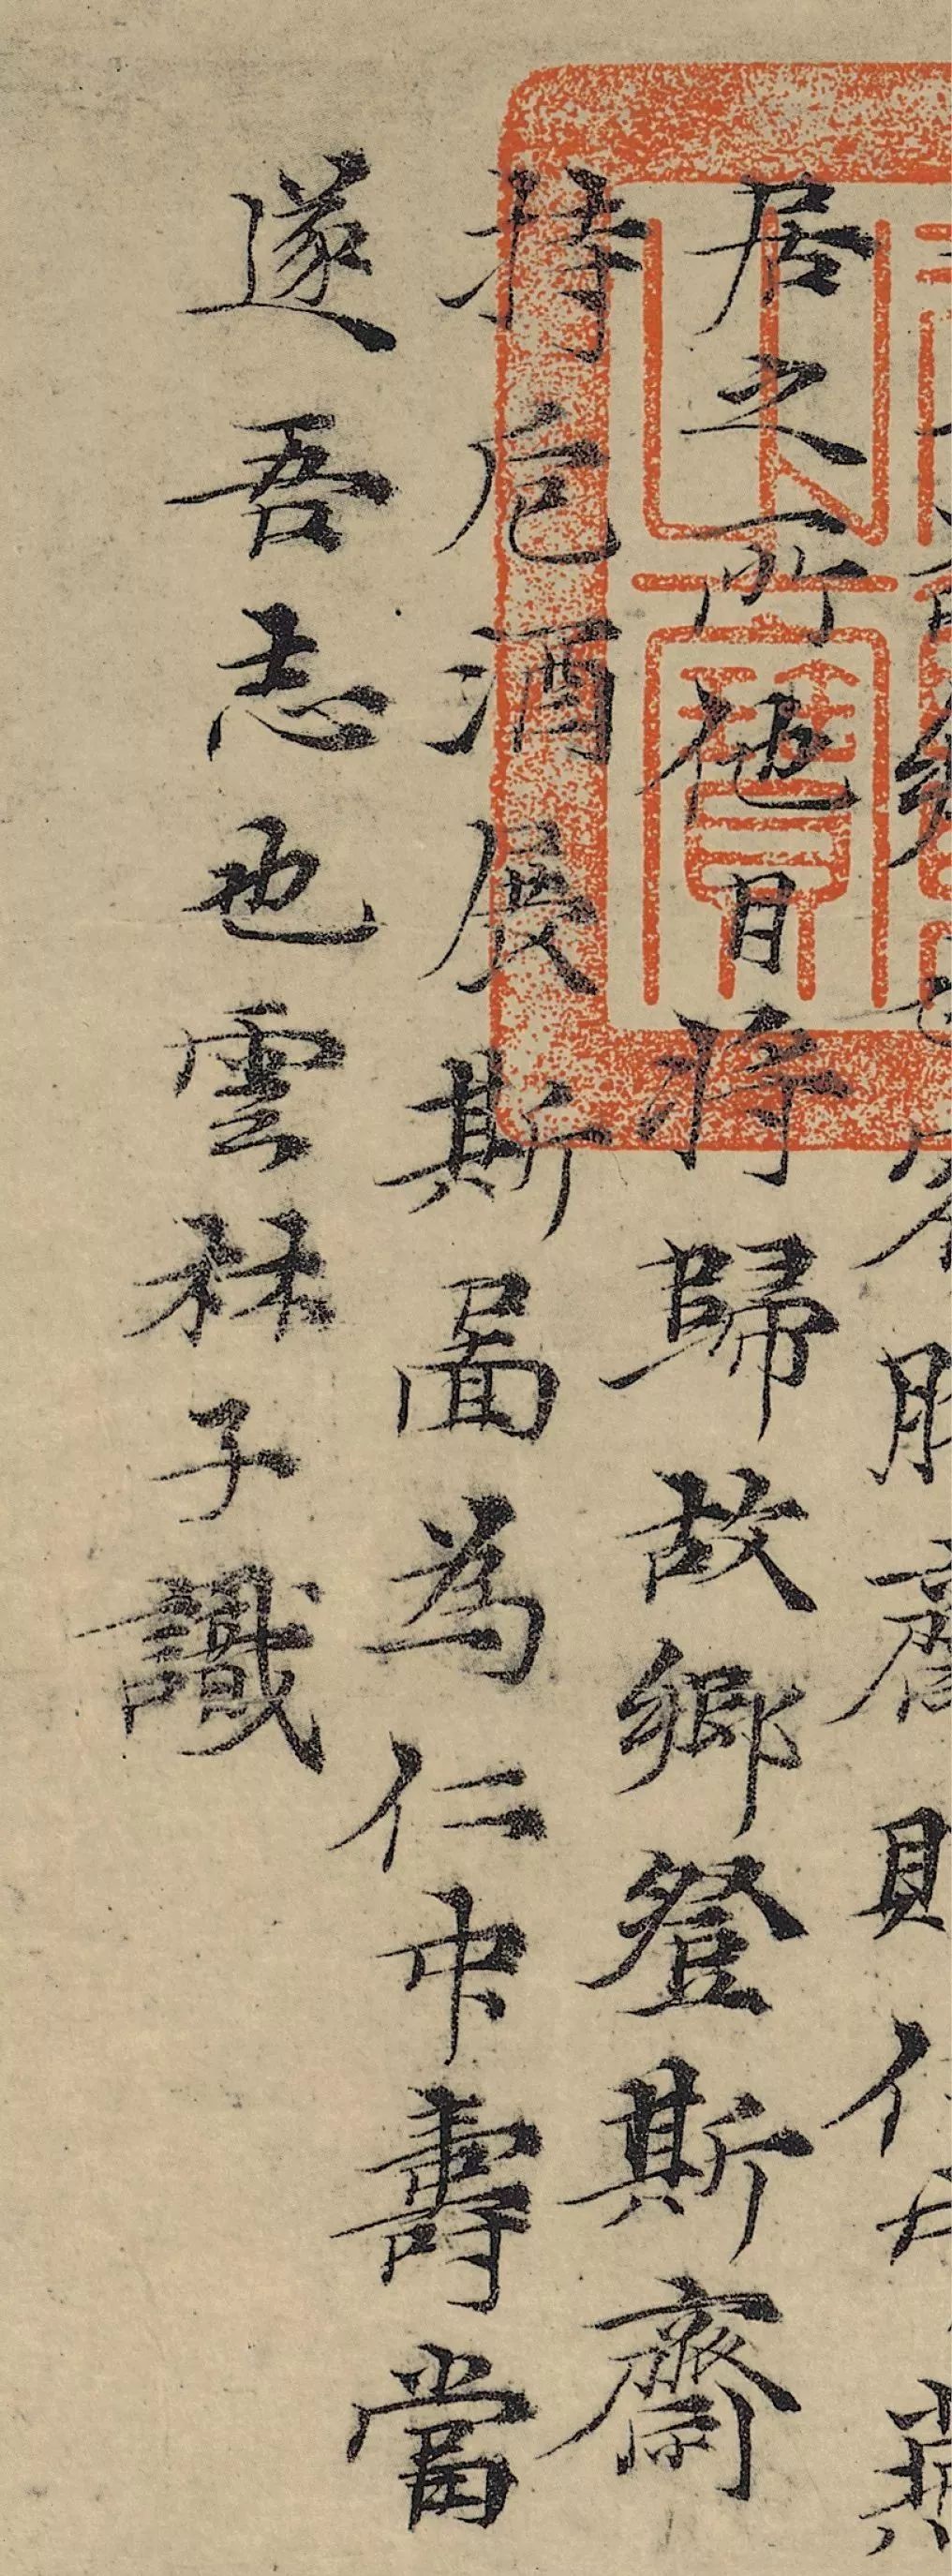 居之所他日将歸故鄉登斯齋
持卮酒展斯圖為仁中壽當
遂吾志也雲林子識